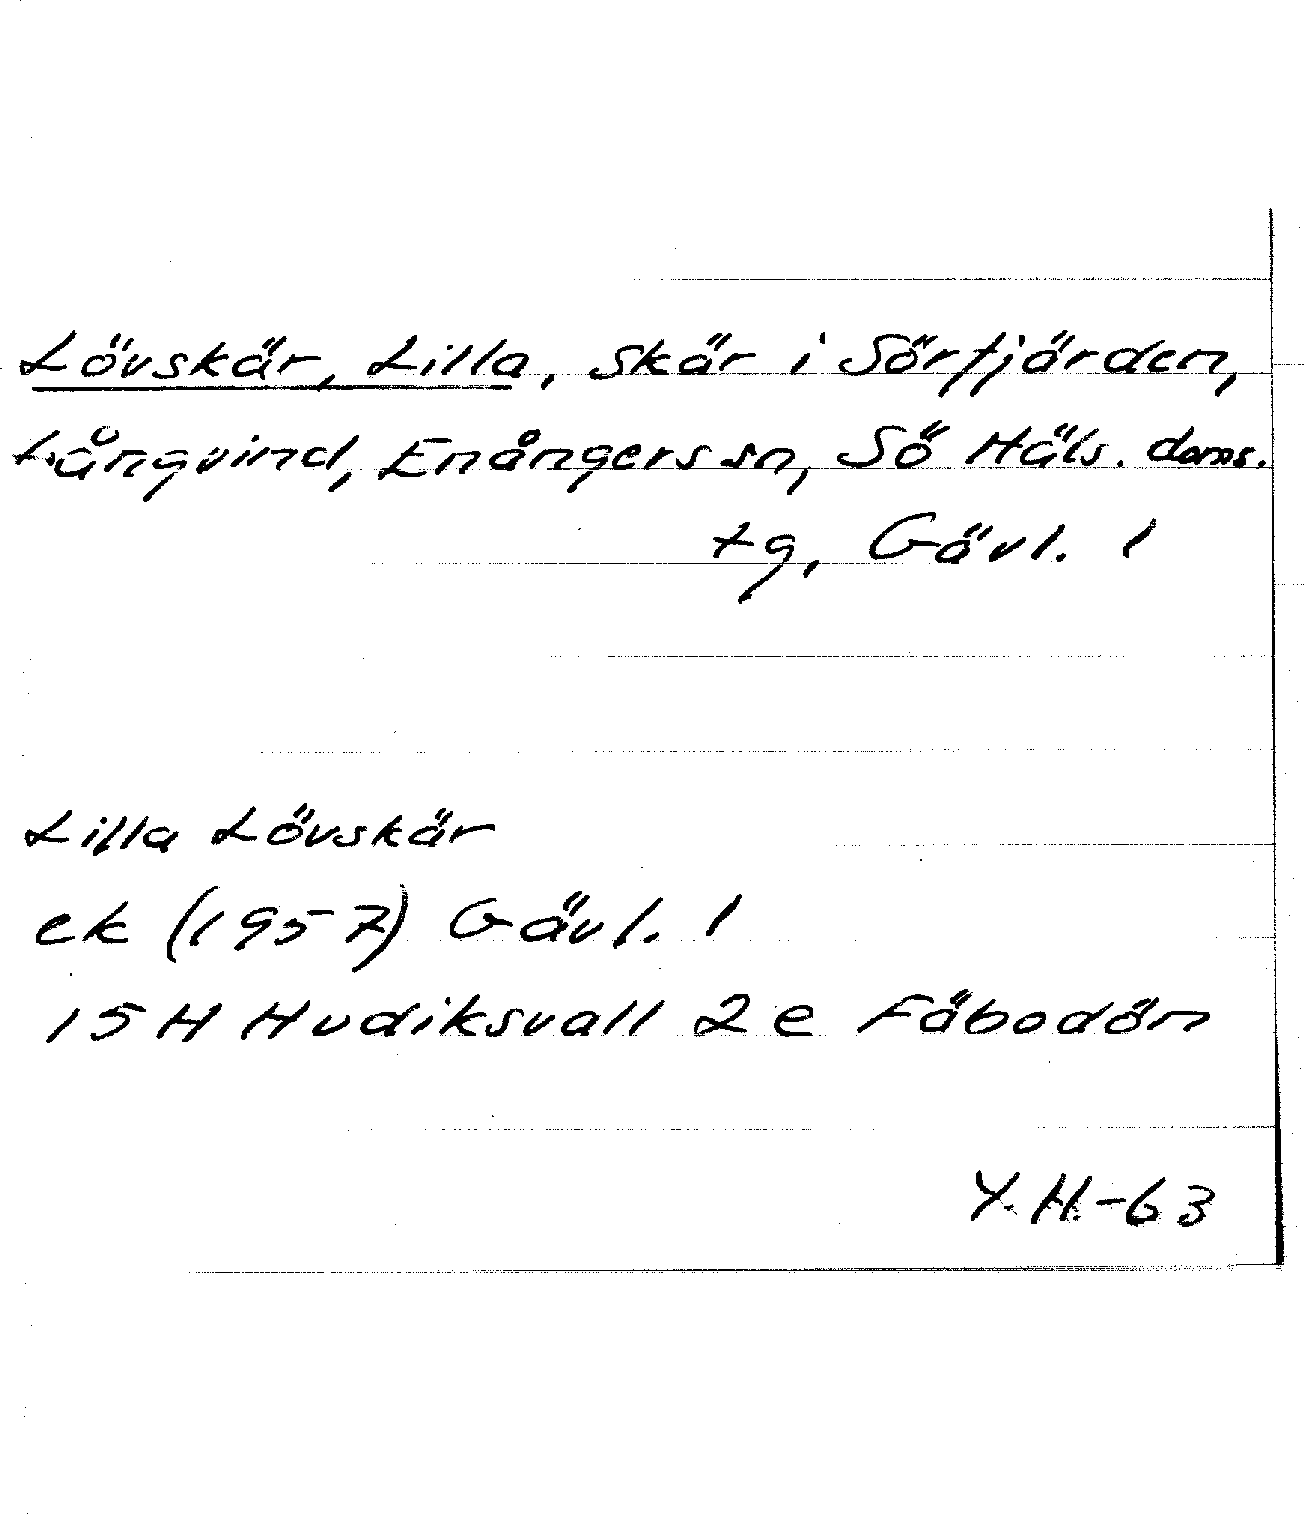 Lövskär, Lilla, skär i Sörfjärden,
Långvind, Enångers sn, Sö Häls. doms.
tg, Gävl. l
Lilla Lövskär
ek (1957) Gävl. l
15H Hudiksvall 2e Fäbodön
Y.H-63